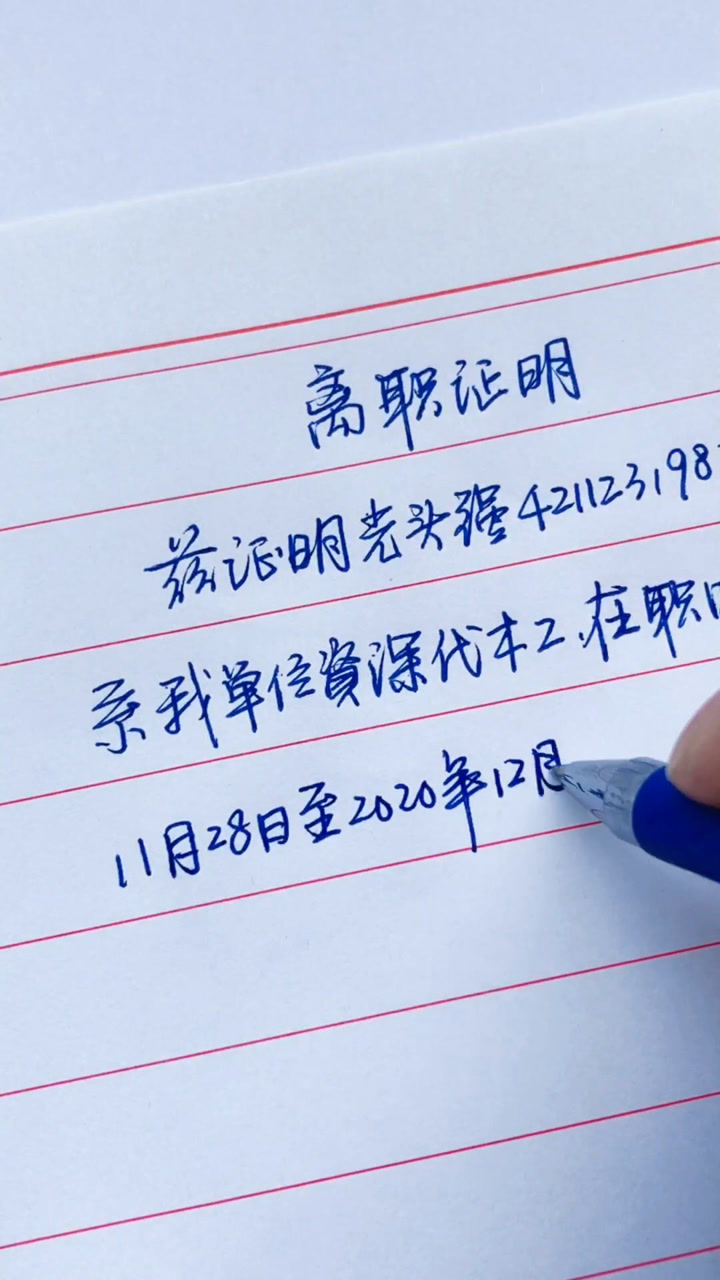 离职证明
兹证明光头强421123198
系我单位資深伐木工、在职
11月28日至2020年12月